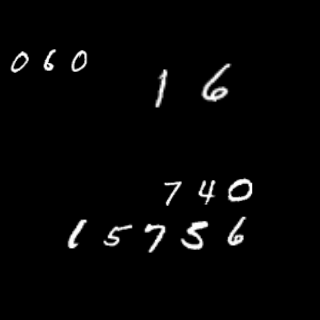 060
16
740
15756